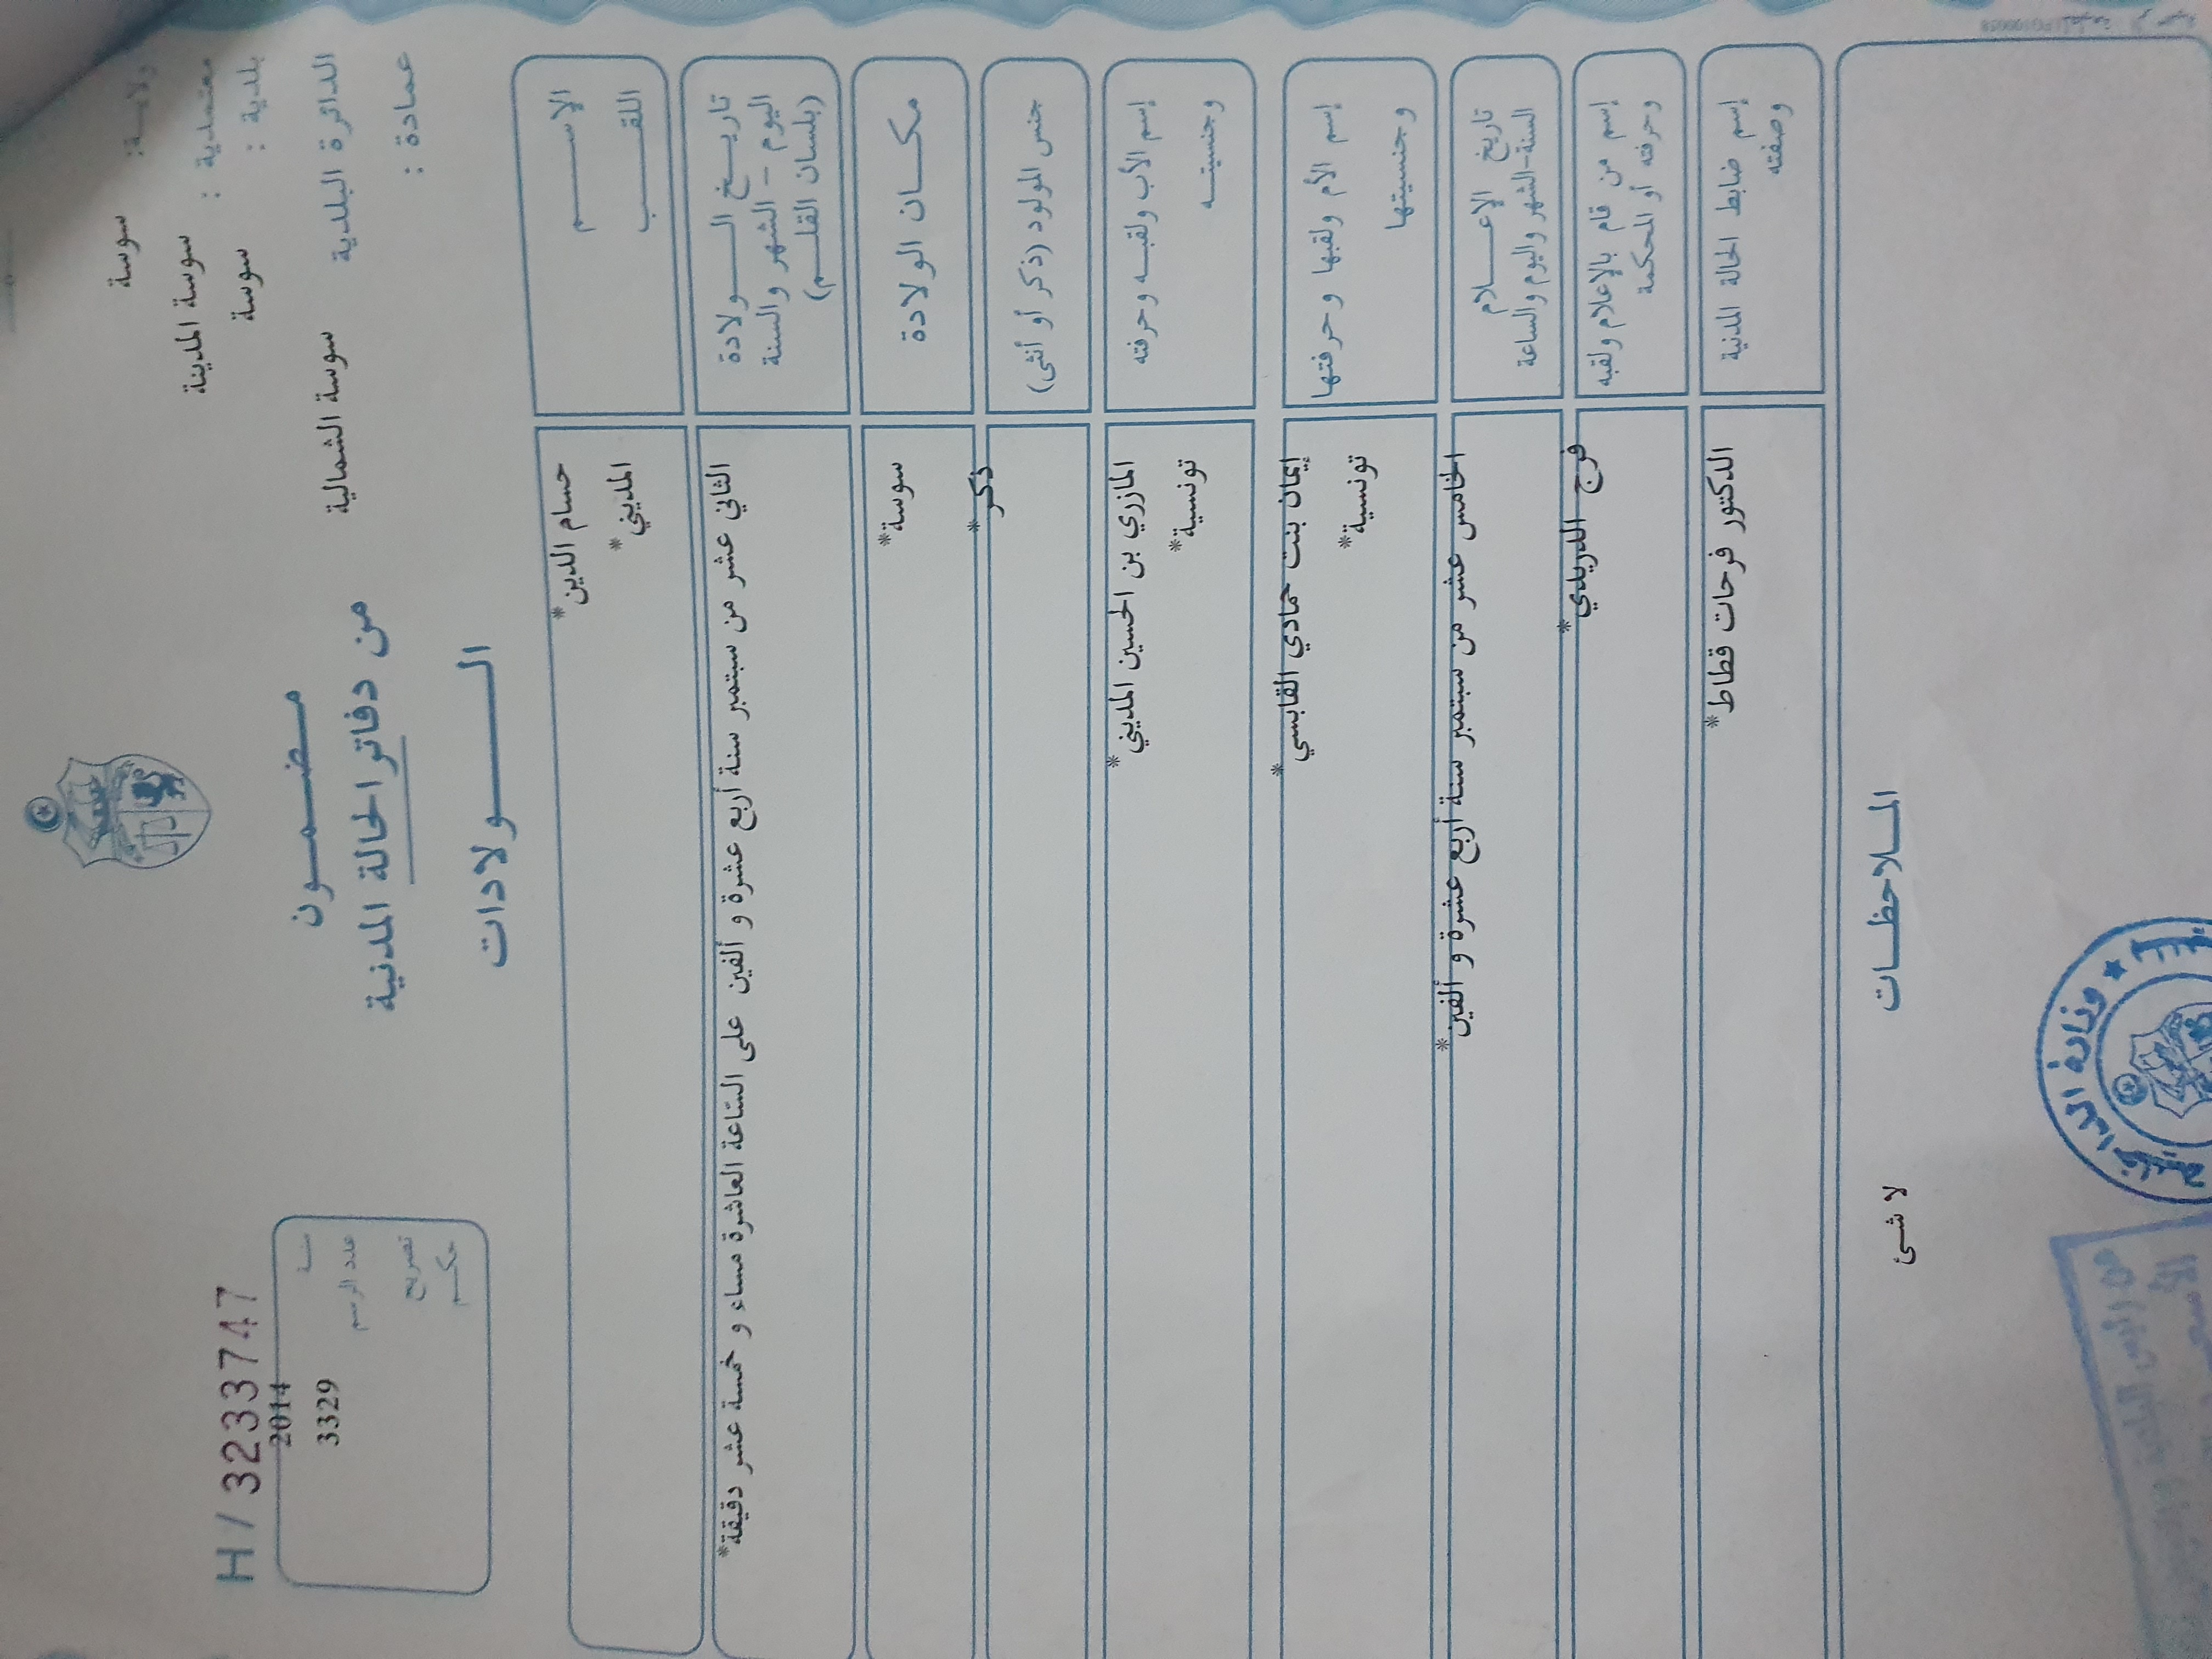 ولايـــة: سوسة
معتمدية : سوسة المدينة
بلدية : سوسة
الدائرة البلدية سوسة الشمالية
عمادة :
مـــضـــمـــون
من دفاتر الحالة المدنية
الـــــولادات
H / 3233747
سنة 2014
عدد الرسم 3329
تصريح
حكم
الإســـــم حسام الدين*
اللقـــــب المديني*
تاريـــخ الـــــولادة
اليوم - الشهر والسنة
(بلسان القلـــم)
الثاني عشر من سبتمبر سنة أربع عشرة و ألفين على الساعة العاشرة مساء و خمسة عشر دقيقة*
مكـــان الولادة سوسة*
جنس المولود (ذكر أو أنثى) ذكر*
إسم الأب ولقبـــه وحرفته المازري بن الحسين المديني*
وجنسيتـــه تونسية*
إسم الأم ولقبها وحرفتها إيمان بنت حمادي القابسي*
وجنسيتها تونسية*
تاريخ الإعـــــلام
السنة-الشهر واليوم والساعة
الخامس عشر من سبتمبر سنة أربع عشرة و ألفين*
إسم من قام بالإعلام ولقبه
وحرفته أو المحكمة
فرج الدريدي*
إسم ضابط الحالة المدنية
وصفته
الدكتور فرحات قطاط*
المـــلاحظـــات
لا شئ
وزارة الداخلية